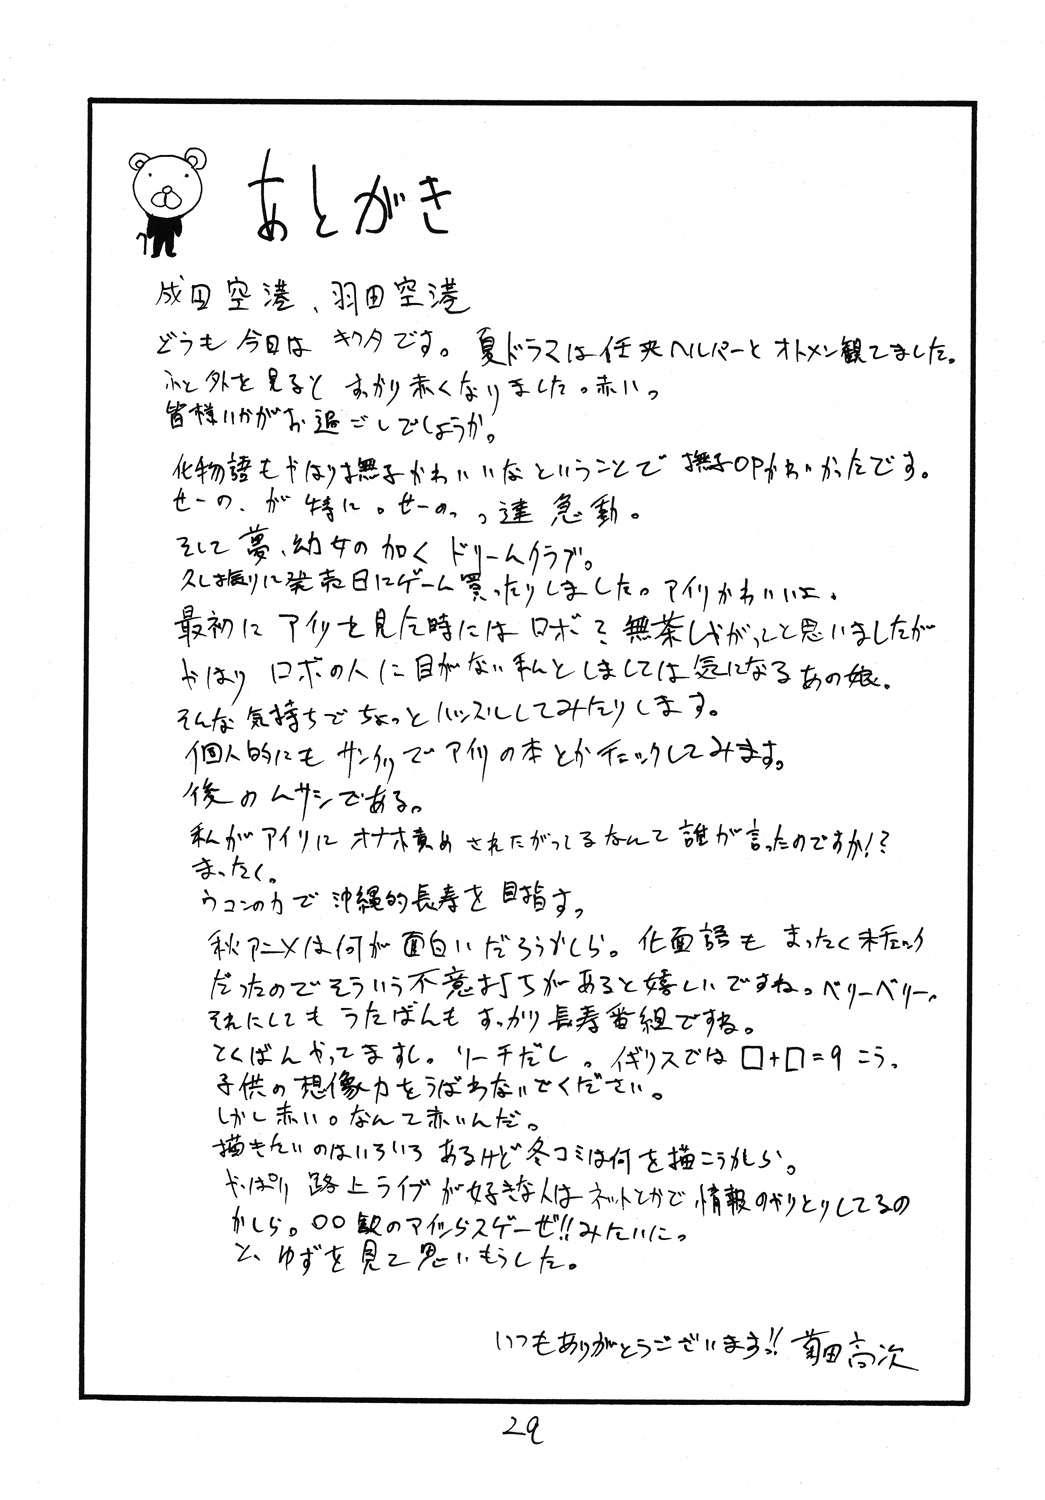 あとがき
成田空港、羽田空港
どうも今日は キクタです。夏ドラマは任夾ヘルパーと オトメン観てました。
ふと外を見ると すっかり赤くなりました。赤いっ
皆様いかがお過ごしでしょうか。
化物語もやはり撫子かわいいなということで 撫子OPかわいかったです。
せーの、が特に。せーのっっ達 急動。
そして夢、幼女の如く ドリームクラブ。
久し振りに発売日にゲーム買ったりしました。アイリかわいいよ、
最初に アイリを見た時には ロボ?無茶しやがってと思いましたが
やはり ロボの人に目がない私としましては気になるあの娘。
そんな気持ちでちょっとハッスルしてみたりします。
個人的にも サンクリで アイリの本とかチェックしてみます。
後のムサシである。
私がアイリに オナホ責めされたがってるなんて 誰が言ったのですか!?
まったく。
ウコンの力で 沖縄的長寿を 目指すっ
秋アニメは何が面白いだろうかしら。化面語も まったく未チェック
だったのでそういう不意打ちがあると嬉しいですね。ベリーベリー。
それにしても うたばんも すっかり長寿番組ですね。
とくばんやってますし。リーチだし。イギリスでは □+□=9 こうっ
子供の想像力をうばわないでください。
しかし赤い。なんて赤いんだ。
描きたいのはいろいろ あるけど冬コミは何を描こうかしら。
やっぱり 路上ライブが好きな人は ネットとかで 情報のやりとりしてるの
かしら。〇〇駅のアイツらスゲーぜ!!みたいにっ
と、ゆずを見て思いもうした。
いつもありがとうございますっ!! 菊田高次
29